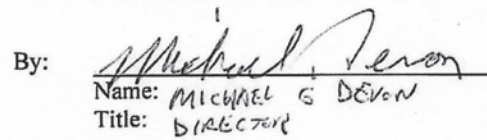 By: Michael Devon
Name: MICHAEL G DEVON
Title: DIRECTOR